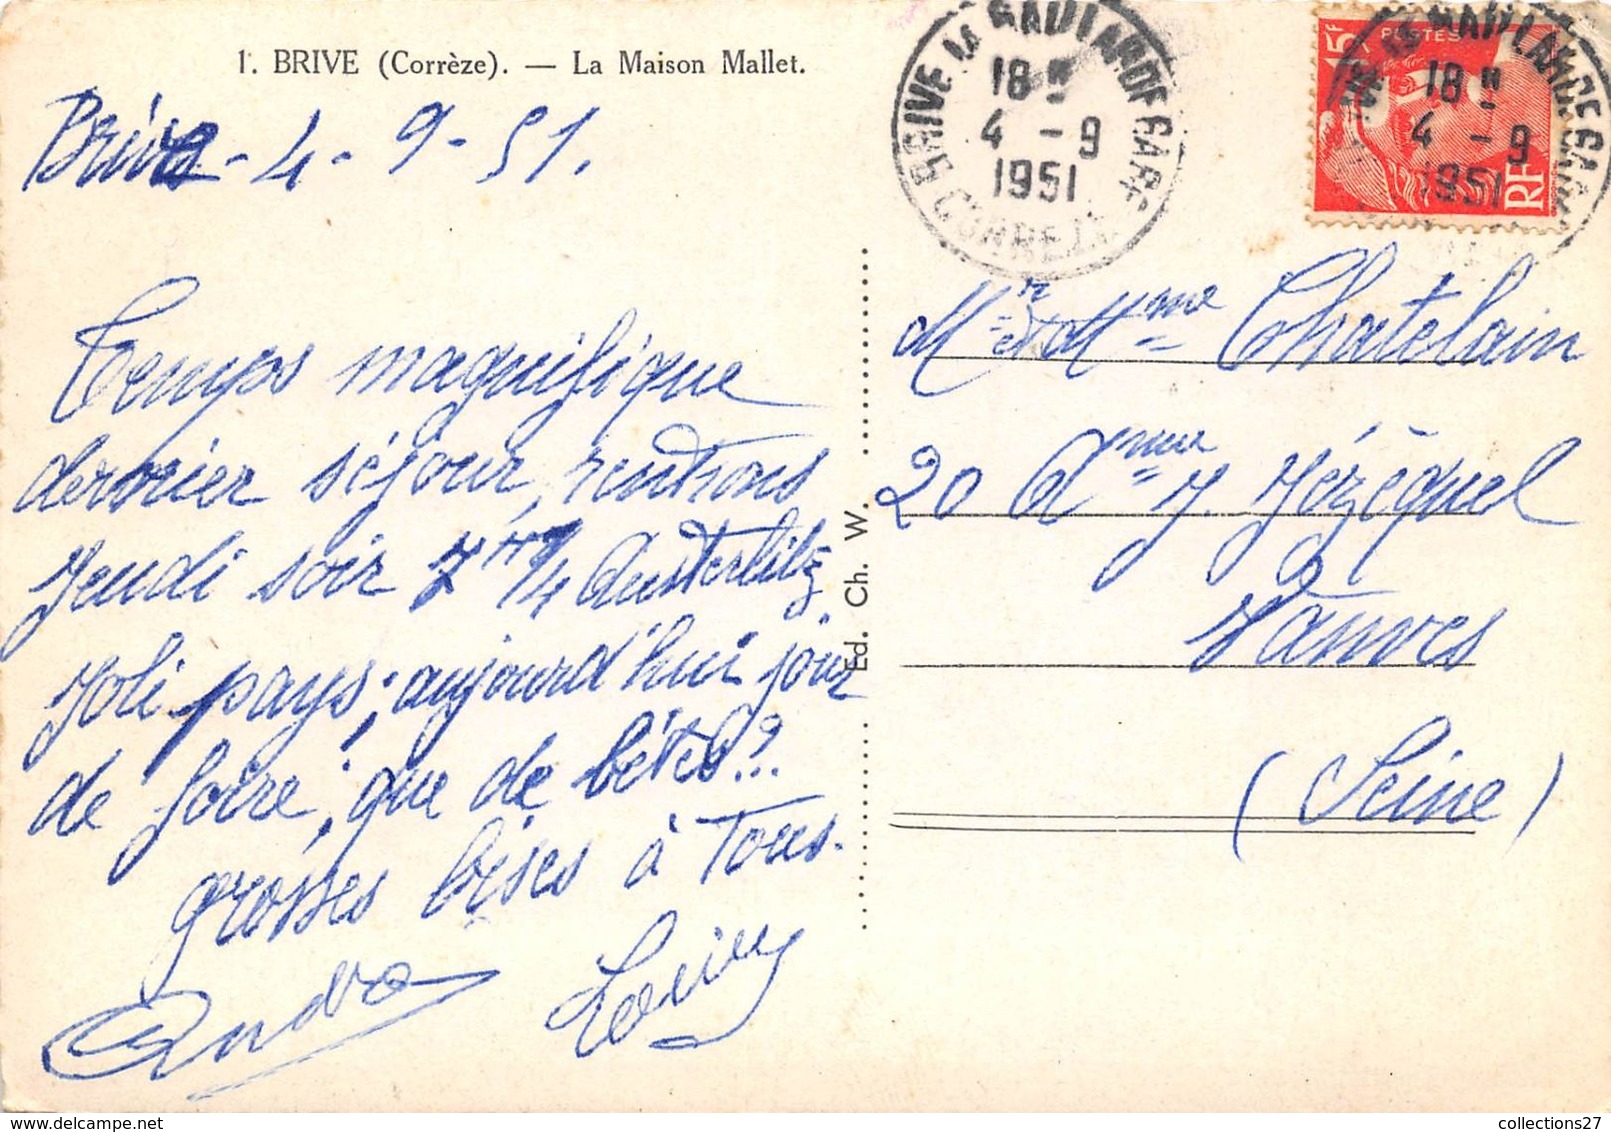 1. BRIVE (Corrèze). — La Maison Mallet.
Brive - 4 - 9 - 51.
Temps magnifique
dernier séjour, rentrons
Jeudi soir 7 H ¼ Austerlitz
Joli pays; aujourd'hui jour
de foire, que de bêtes!..
grosses bises à Tous.
BRIVE LA GAILLARDE GARE
18 H
4 - 9
1951
CORREZE
POSTES
5F
RF
BRIVE LA GAILLARDE GARE
18 H
4 - 9
1951
Mr et Mme Chatelain
20 J. Jézéquel
Vanves
(Seine)
Ed. Ch. W.
collections27